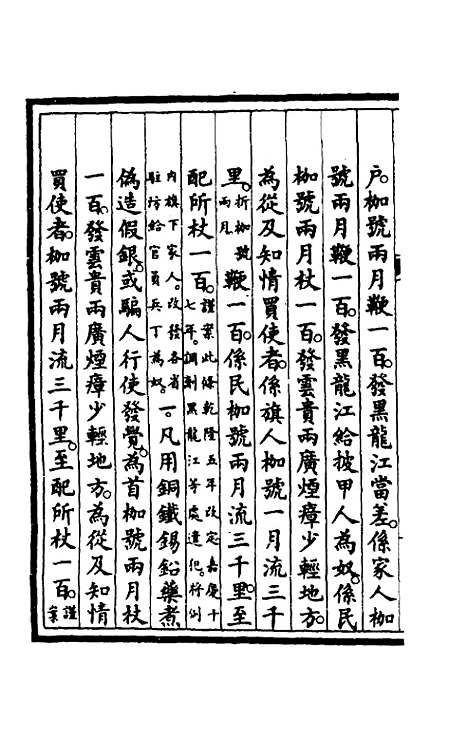 戶。枷號兩月鞭一百。發黑龍江當差。係家人枷
號兩月鞭一百。發黑龍江給披甲人為奴。係民
枷號兩月杖一百。發雲貴兩廣煙瘴少輕地方。
為從及知情買使者。係旗人枷號一月流三千
里。折枷號兩月鞭一百。係民枷號兩月流三千里。至
配所杖一百。謹案此條乾隆五年改定嘉慶十七年。調劑黑龍江等處遣犯。將例
內旗下家人。改發各省駐防給官員兵丁為奴。一。凡用銅鐵錫鉛藥煮
偽造假銀。或騙人行使發覺。為首枷號兩月杖
一百。發雲貴兩廣煙瘴少輕地方。為從及知情
買使者。枷號兩月流三千里。至配所杖一百。謹案